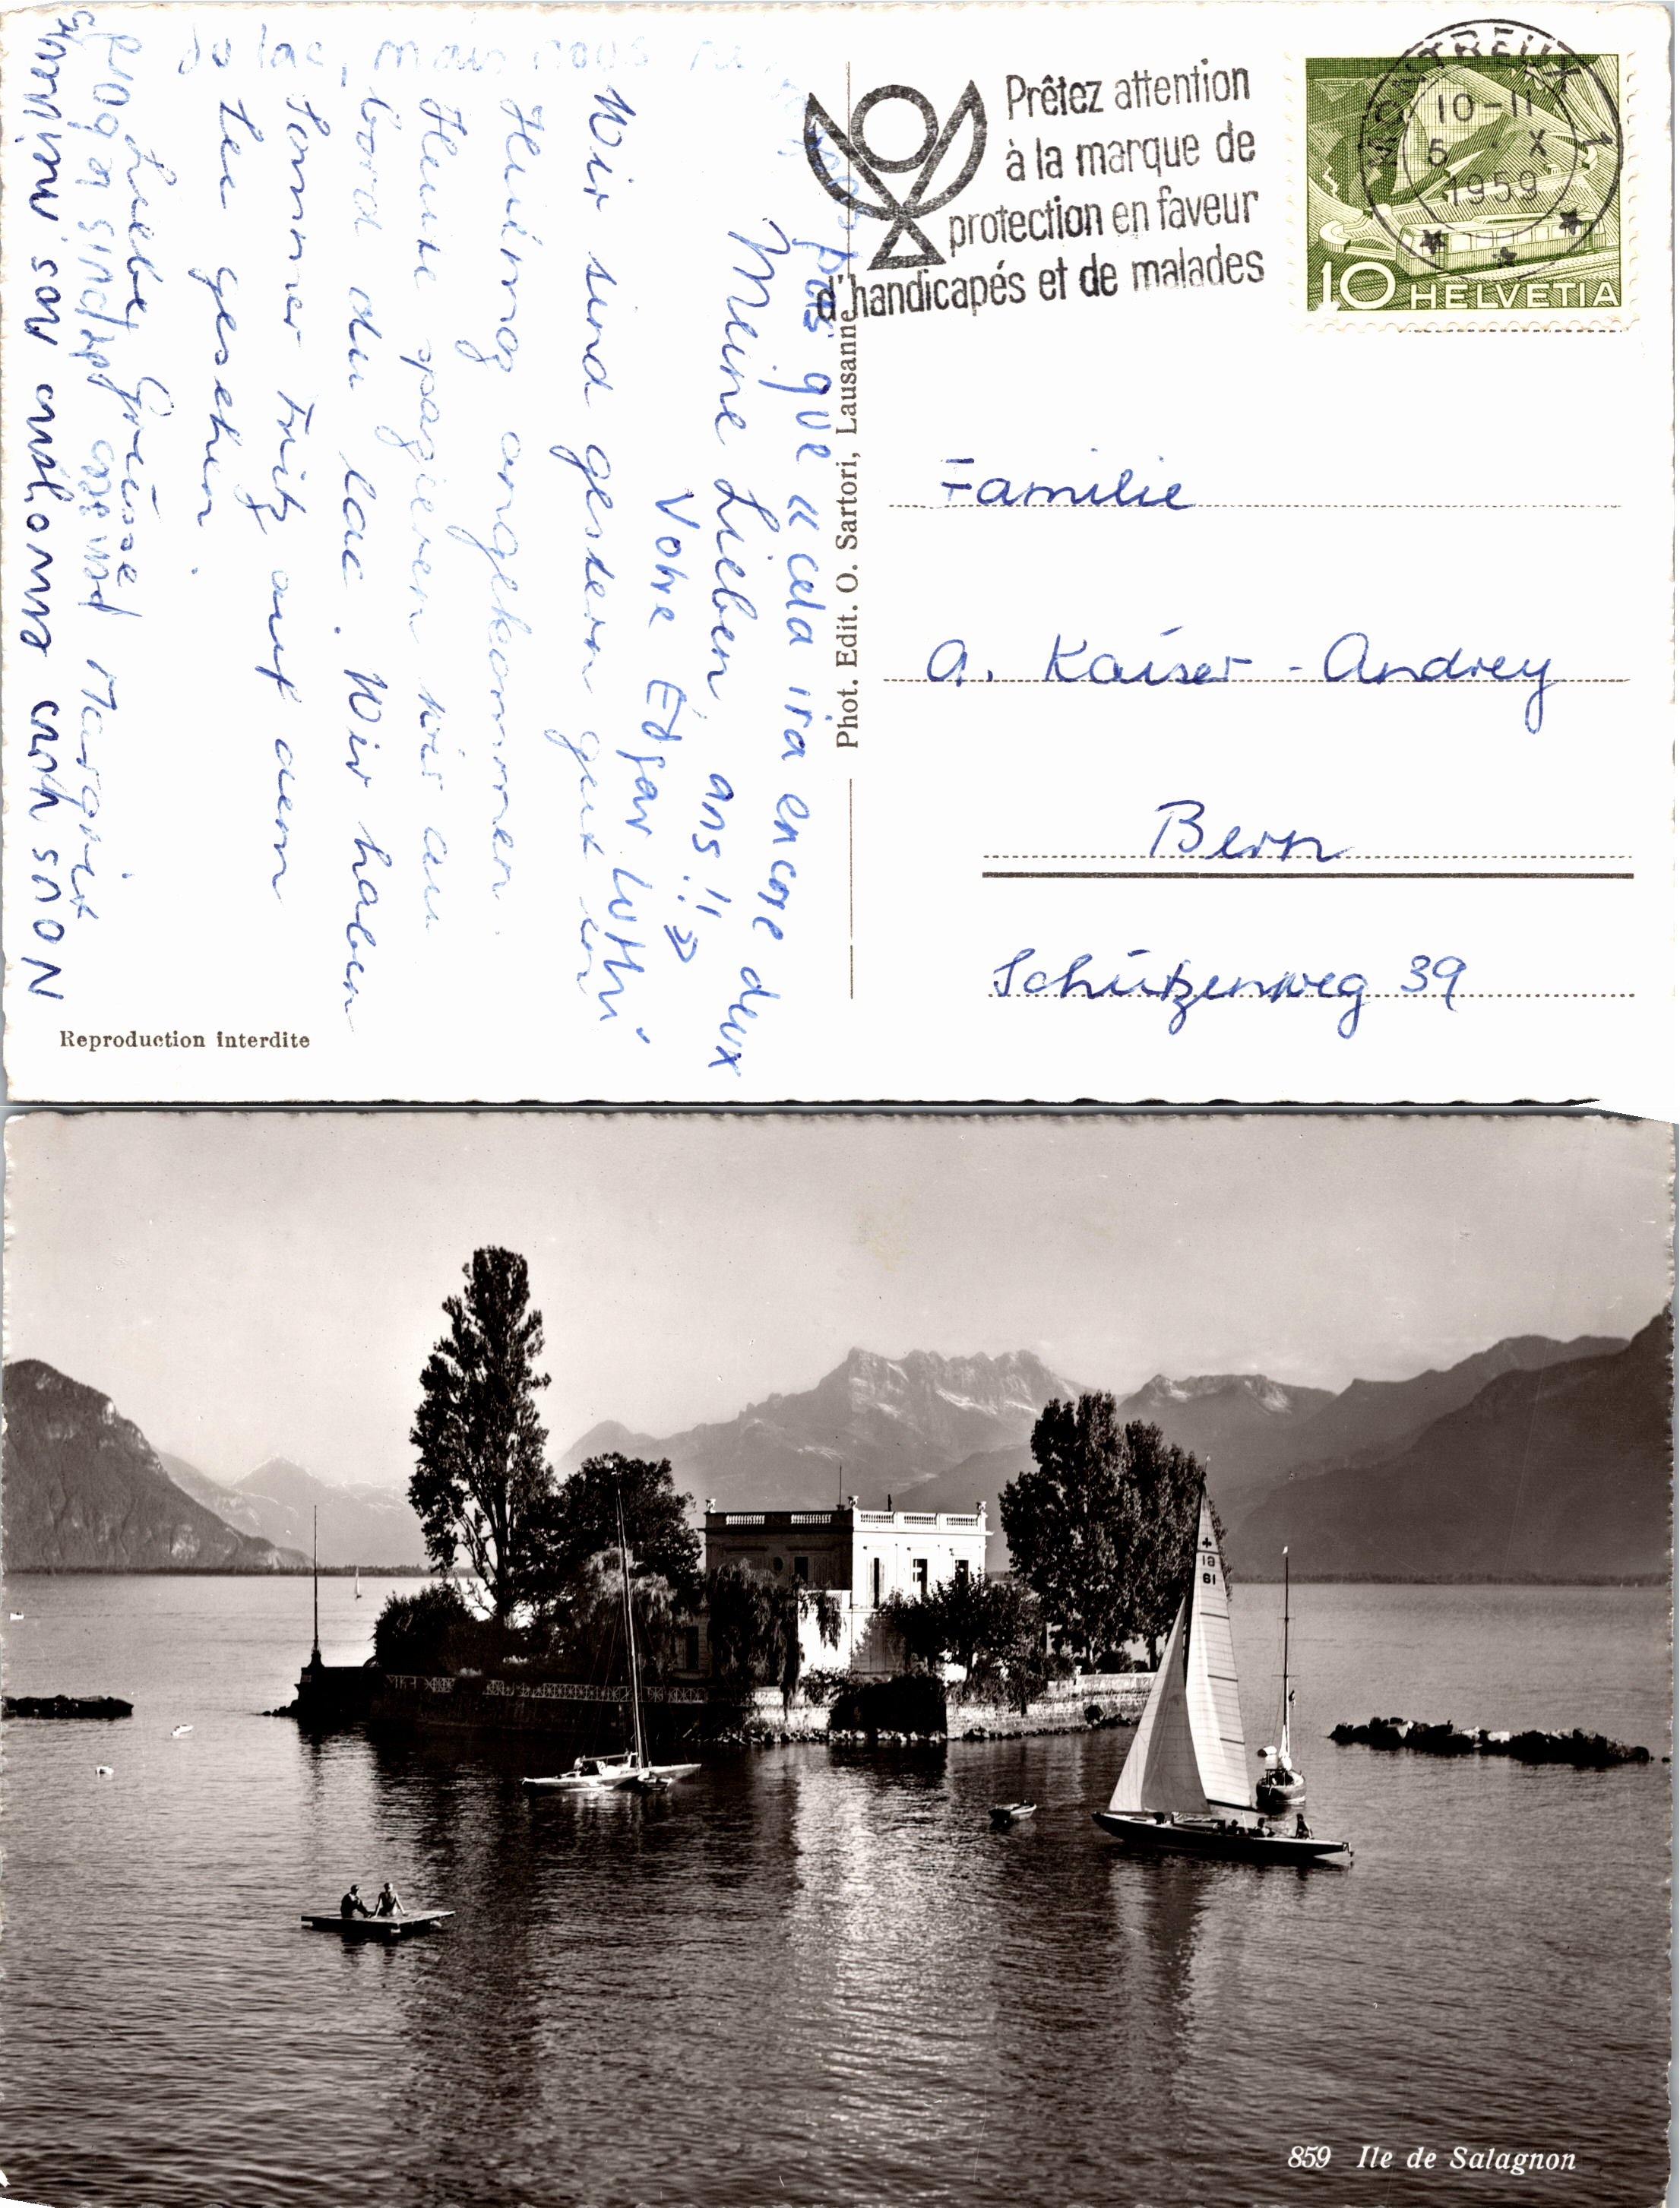 Prêtez attention
à la marque de
protection en faveur
d'handicapés et de malades
MONTREUX 1
10-11
5 X
1959
10 HELVETIA
Familie
A. Kaiser-Andrey
Bern
Schützenweg 39
Phot. Edit. O. Sartori, Lausanne
Reproduction interdite
Meine Lieben,
Wir sind gestern gut in
angekommen.
Heute spazieren wir au
bord du lac. Wir haben
Sommer Fritz auf dem
See gesehen.
Liebe Grüsse Margrit
Nous
du lac, mais nous ne
pas que « cela ira encore deux
ans!! »
Votre Edgar Lüthi
+
18
61
859 Ile de Salagnon